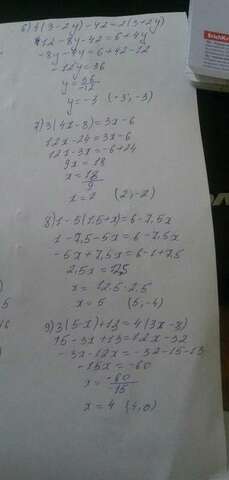 6) 4(3-2y)-42=2(3+2y)
12-8y-42=6+4y
-8y-4y=6+42-12
-12y=36
y=36/-12
y=-3 (-3,-3)
7) 3(4x-8)=3x-6
12x-24=3x-6
12x-3x=-6+24
9x=18
x=18/9
x=2 (2,-2)
8) 1-5(1,5+x)=6-7,5x
1-7,5-5x=6-7,5x
-5x+7,5x=6-1+7,5
2,5x=12,5
x=12,5:2,5
x=5 (5,-4)
9) 3(5-x)+13=4(3x-8)
15-3x+13=12x-32
-3x-12x=-32-15-13
-15x=-60
x=-60/15
x=4 (4,0)